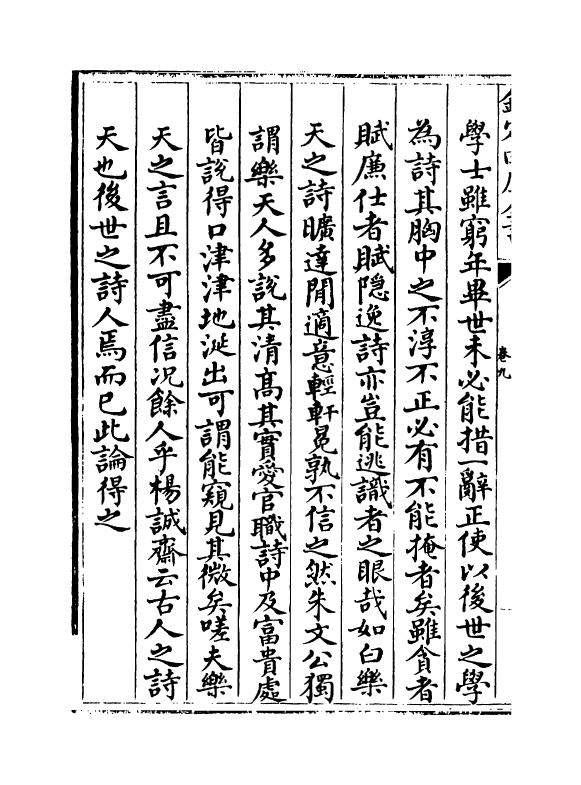 欽定四庫全書
卷九
學士雖窮年畢世未必能措一辭正使以後世之學
為詩其胸中之不淳不正必有不能掩者矣雖貪者
賦廉仕者賦隐逸詩亦豈能逃識者之眼哉如白樂
天之詩曠達閒適意輕軒冕孰不信之然朱文公獨
謂樂天人多說其清髙其實愛官職詩中及富貴處
皆說得口津津地涎出可謂能窺見其微矣嗟夫樂
天之言且不可盡信况餘人乎楊誠齋云古人之詩
天也後世之詩人焉而已此論得之